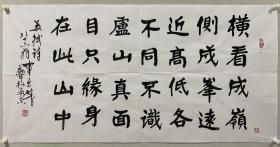 橫看成嶺
側成峯遠
近高低各
不同不識
盧山真面
目只緣身
在此山中